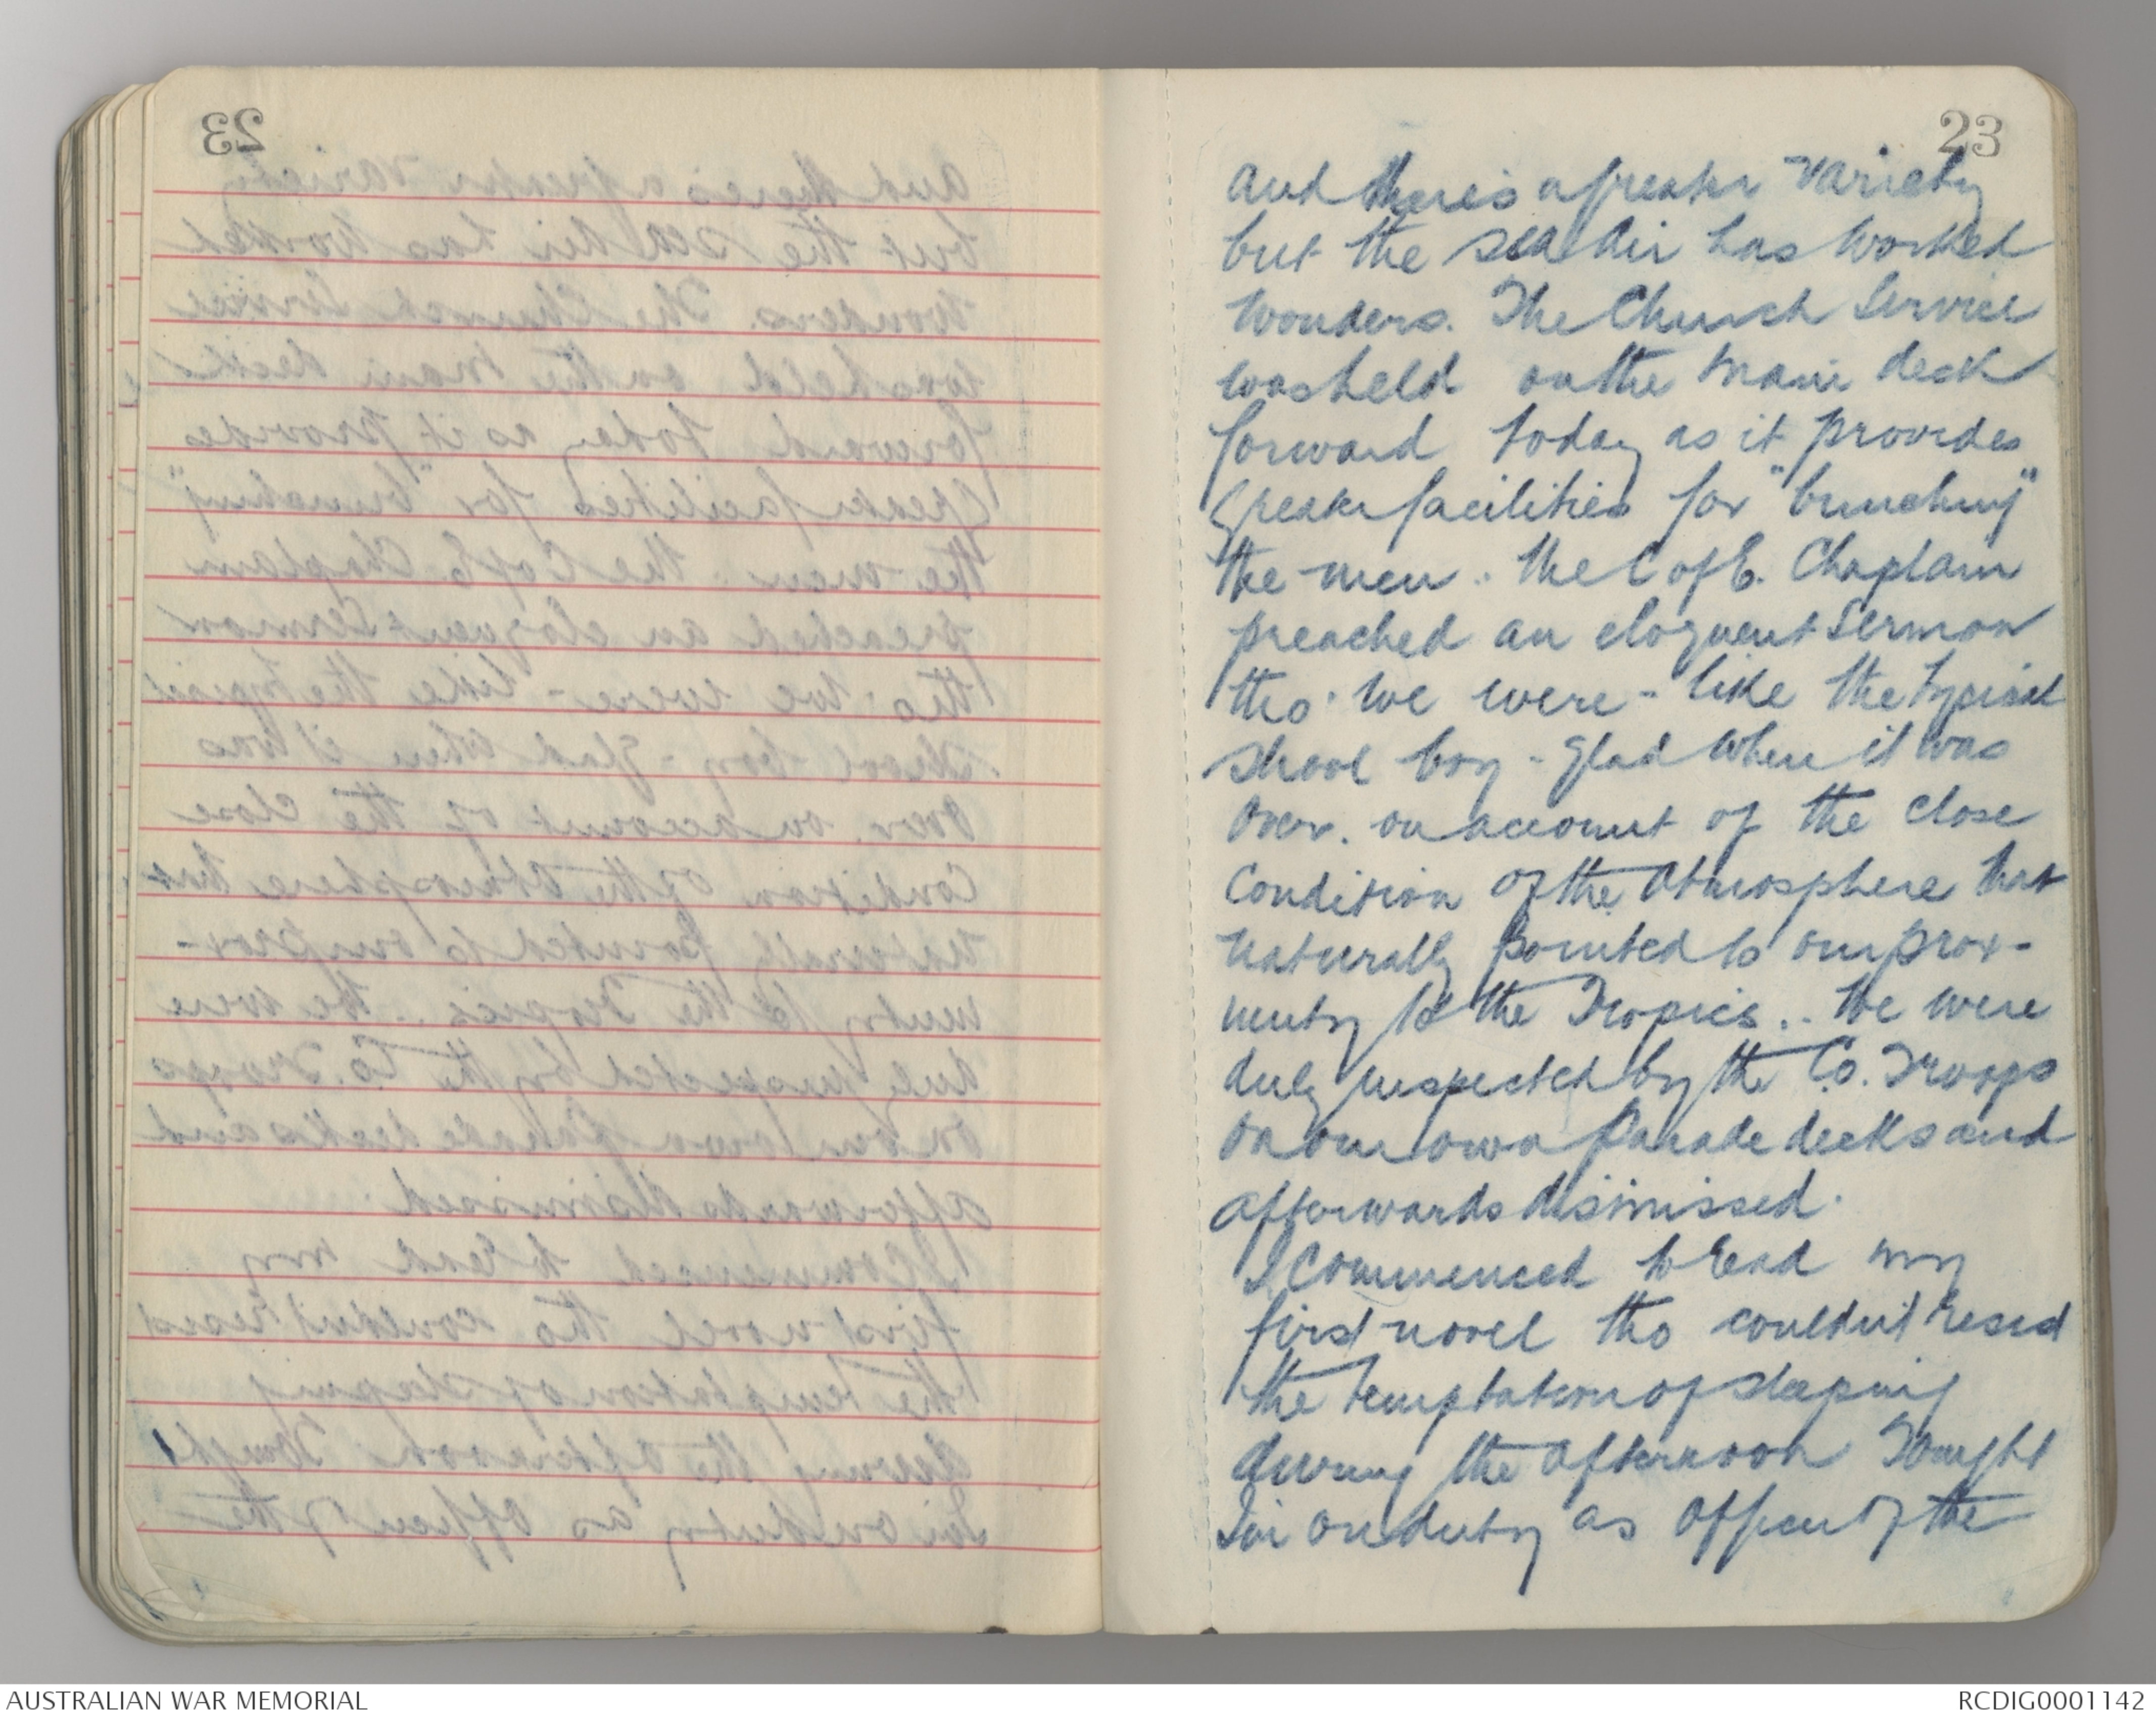 23
and there's a greater variety
but the sea air has worked
wonders. The Church Service
was held on the main deck
forward today as it provides
greater facilities for "bunching"
the men.. the C of E. Chaplain
preached an eloquent Sermon
tho' we were - like the typical
school boy - glad when it was
over. on account of the close
condition of the atmosphere that
naturally pointed to our prox-
imity to the Tropics.. We were
duly inspected by the C.O. Troops
on our own Parade decks and
afterwards dismissed.
I commenced to read my
first novel tho couldn't resist
the temptation of sleeping
during the afternoon Tonight
I'm on duty as Officer of the
AUSTRALIAN WAR MEMORIAL
RCDIG0001142